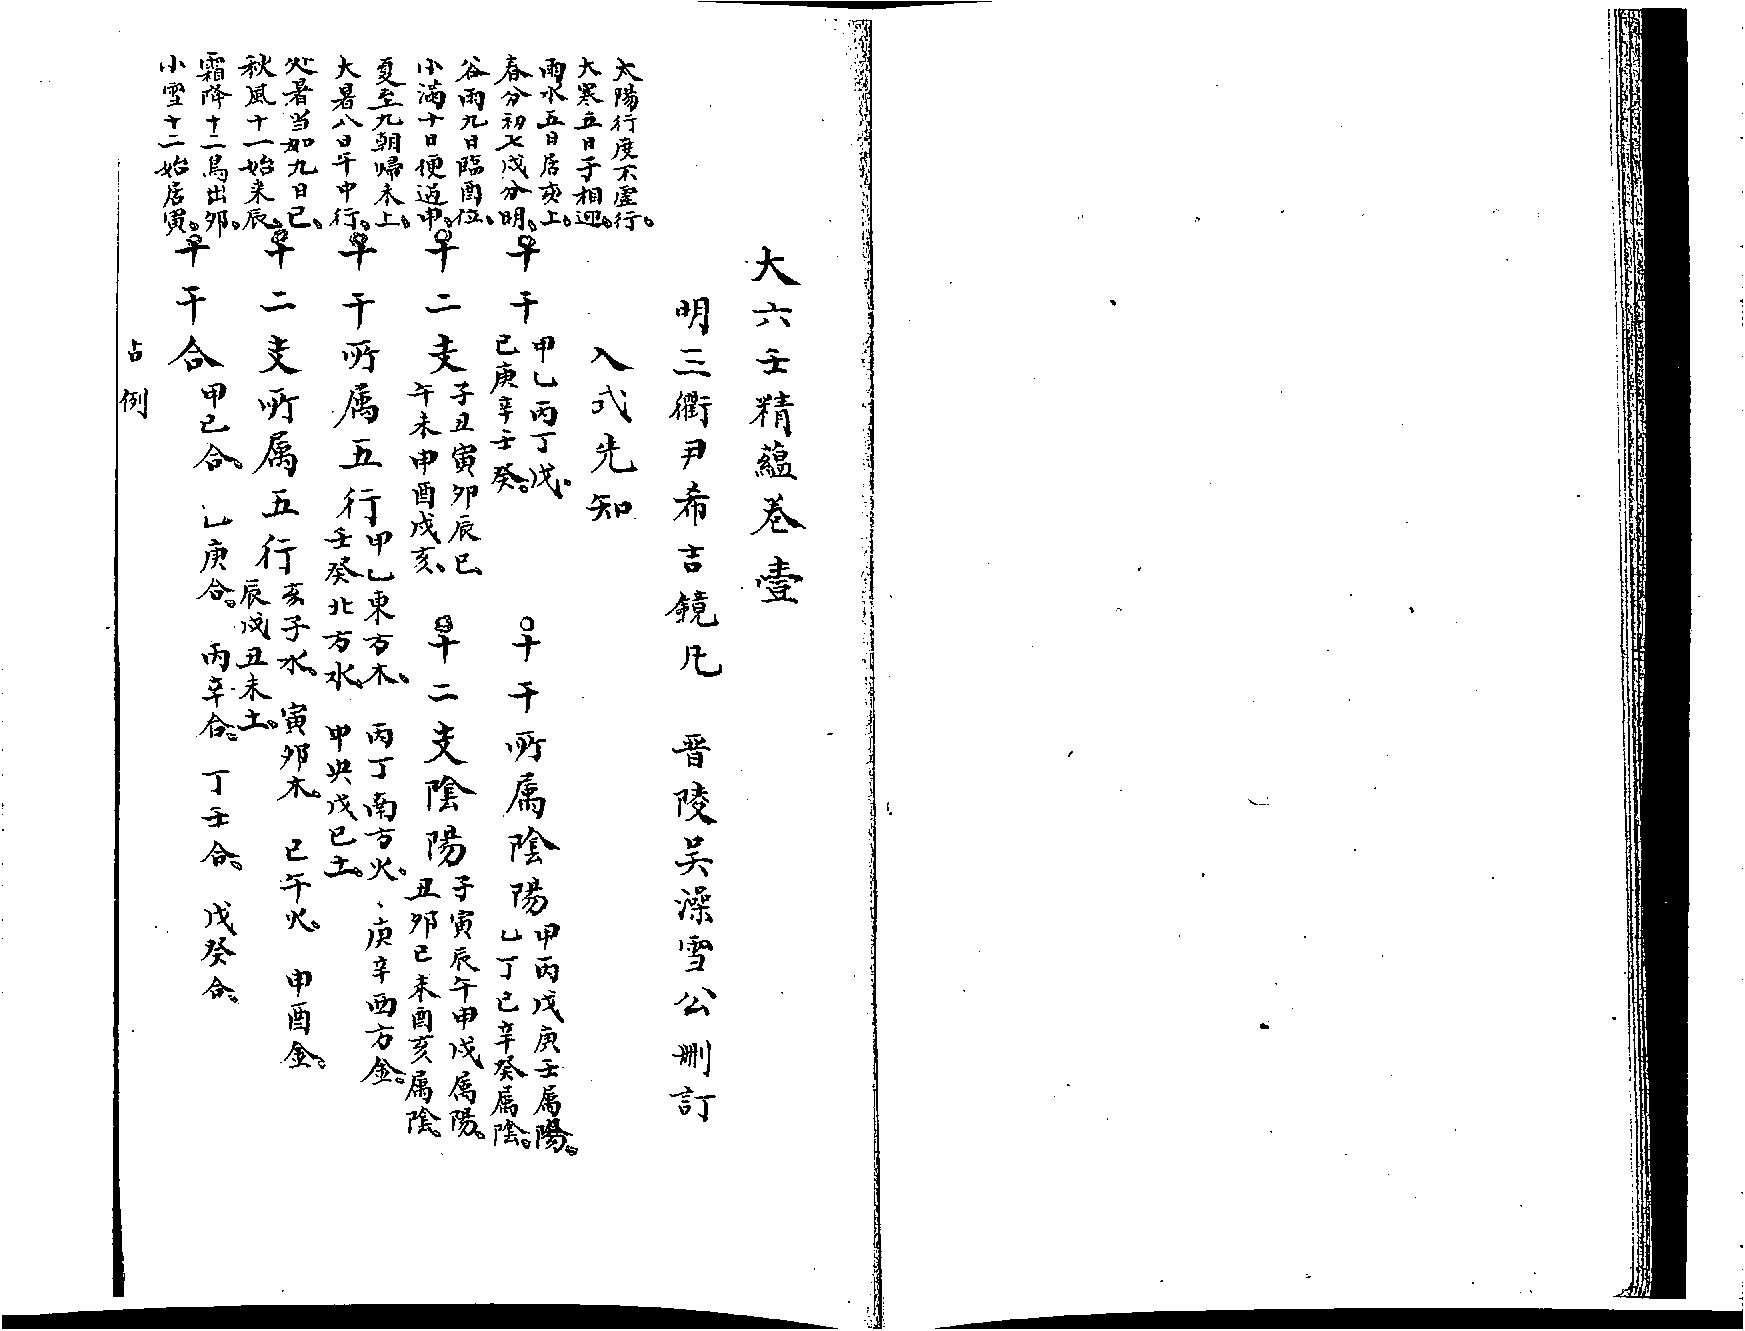 大六壬精蘊卷壹
明三衢尹希吉鏡凡　晋陵吴澡雪公删訂
入式先知
太陽行度不虛行。
大寒五日子相迎。
雨水五日居亥上。
春分初七戌分明。
谷雨九日臨酉位。
小滿十日便過申。
夏至九朝歸未上。
大暑八日午中行。
处暑当如九日巳。
秋風十一始来辰。
霜降十二鳥出夘。
小雪十二始居寅。
○十干
甲乙丙丁戊。
己庚辛壬癸。
○十干所属陰陽
甲丙戊庚壬属陽。
乙丁己辛癸属陰。
○十二支
子丑寅夘辰巳
午未申酉戌亥、
○十二支陰陽
子寅辰午申戌属陽。
丑夘巳未酉亥属陰。
○十干所属五行
甲乙東方木。　丙丁南方火。、庚辛西方金。
壬癸北方水。　中央戊己土。
○十二支所属五行
亥子水。　寅夘木。　巳午火。　申酉金。
辰戌丑未土。
○十干合
甲己合。　乙庚合。　丙辛合。　丁壬合。　戊癸合。
占例